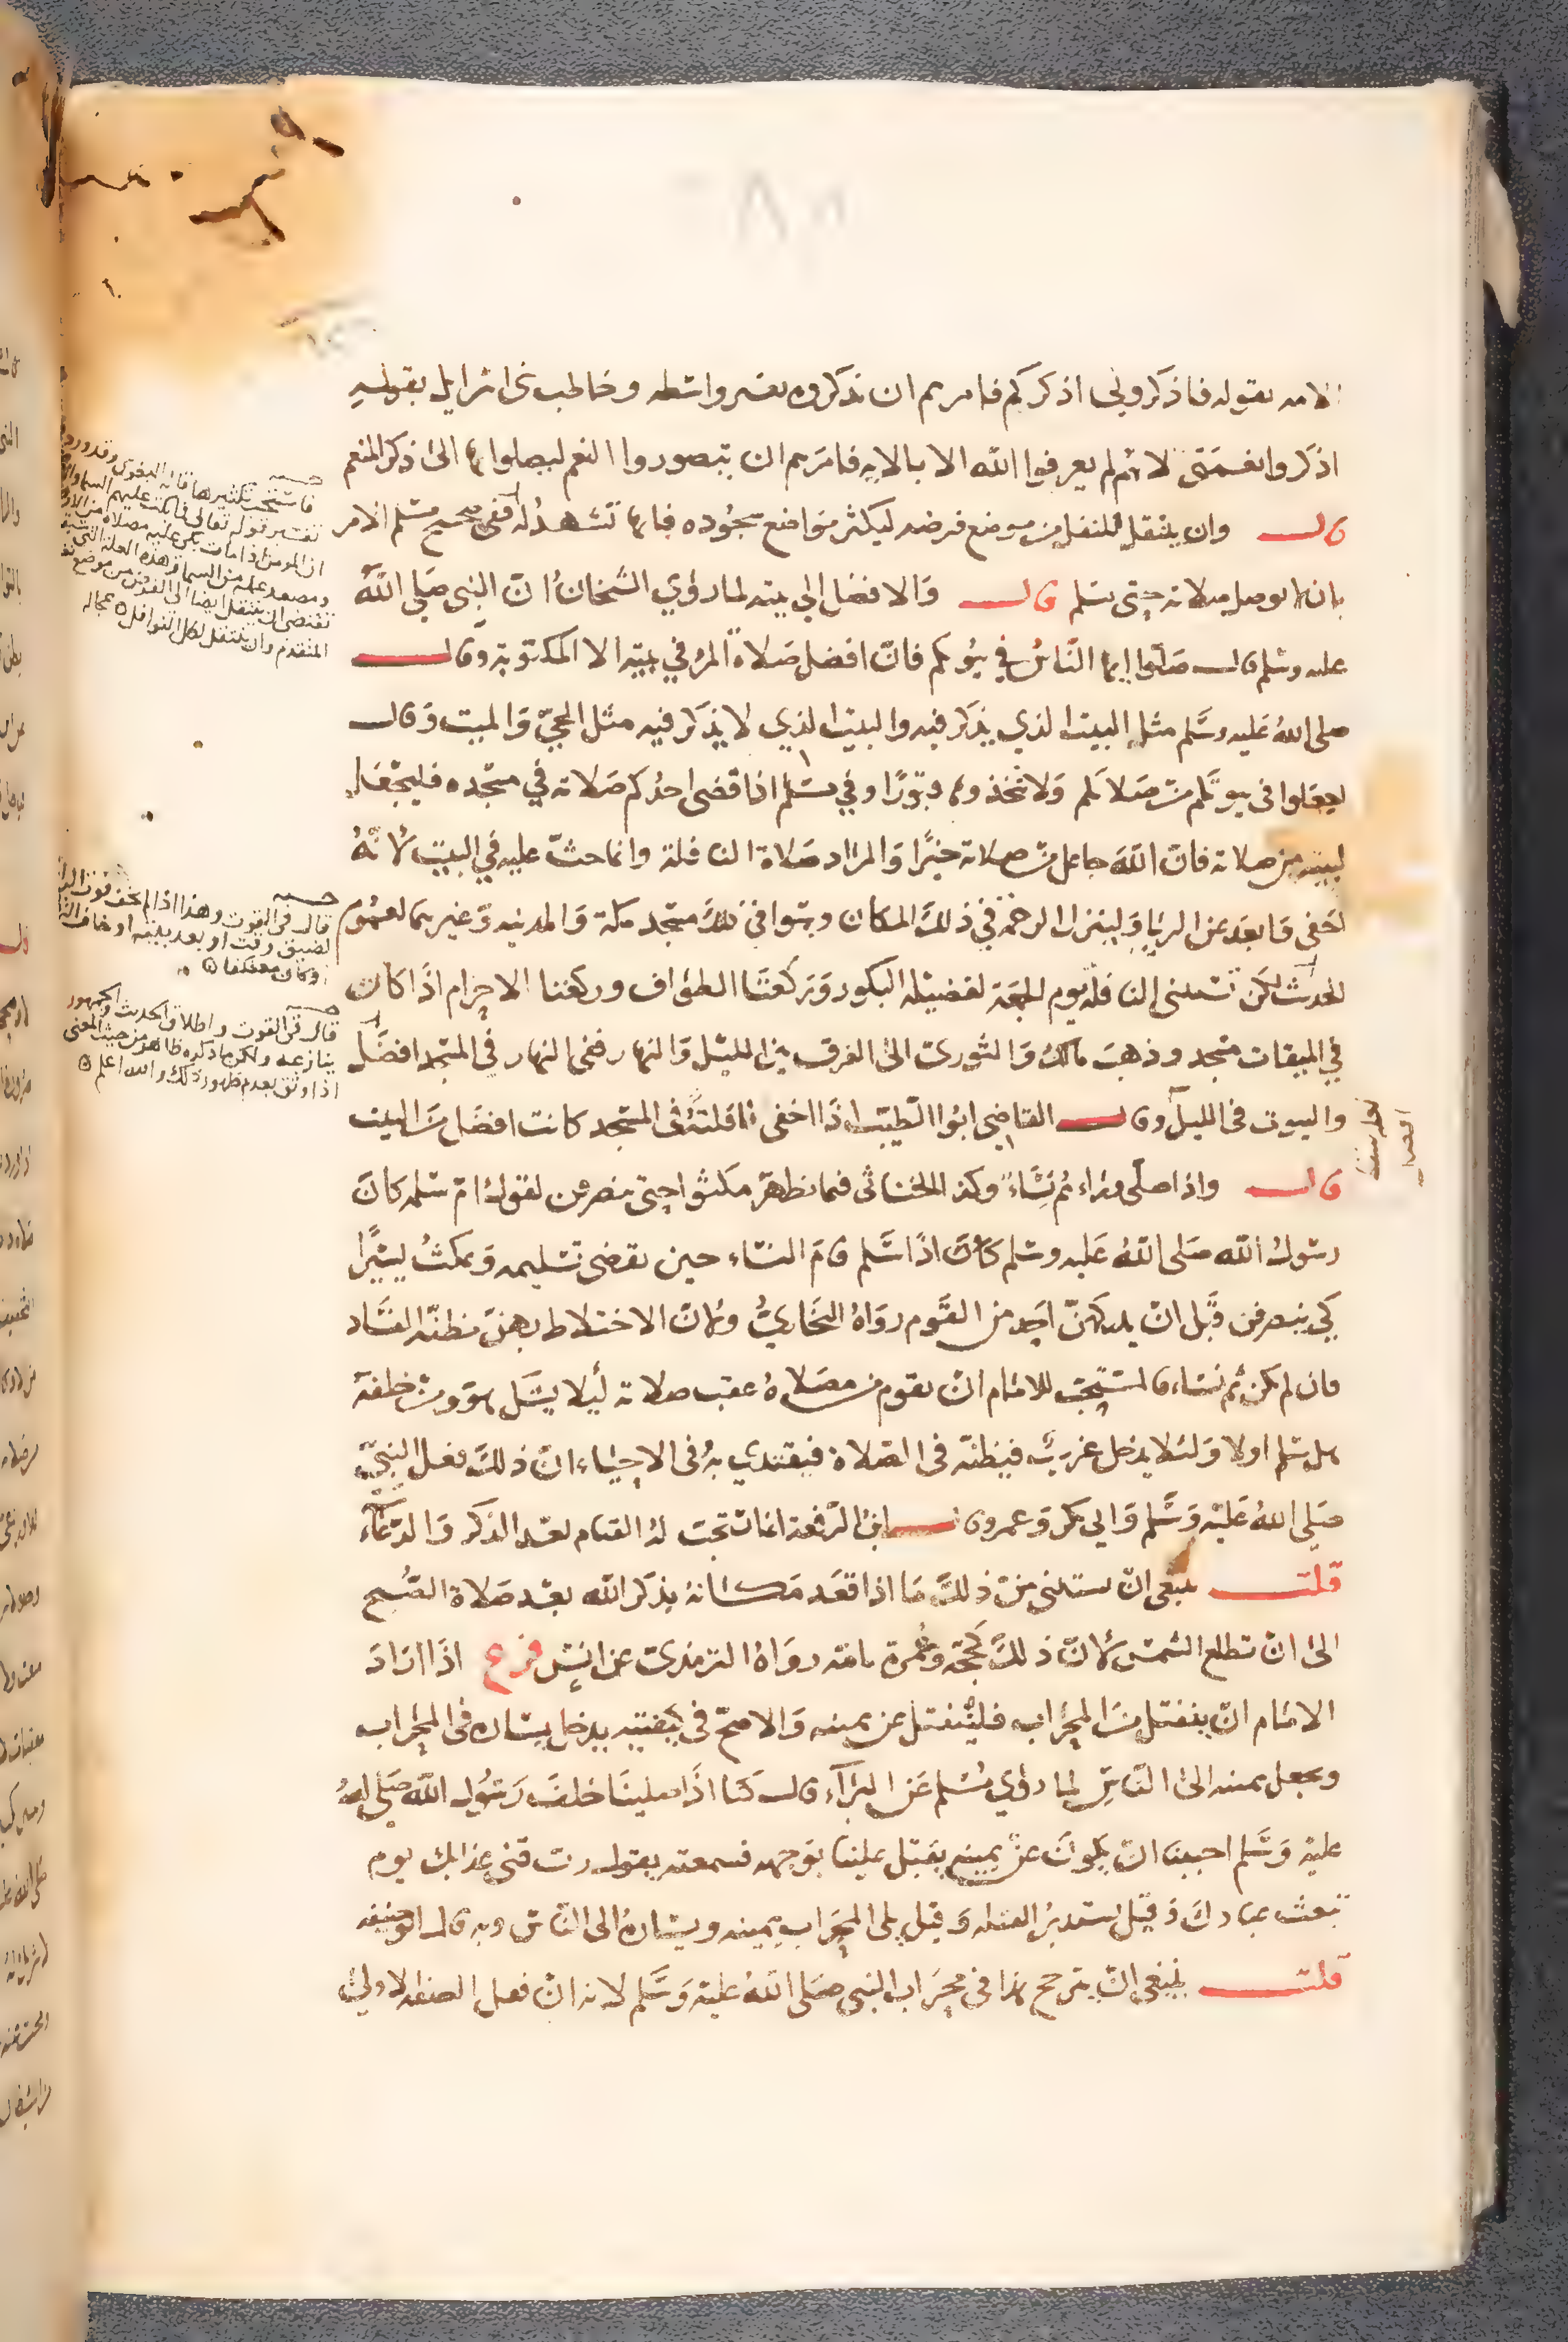 الامه بقوله فاذكروني اذكركم فامرهم ان يذكروه بغير واسطه وخاطب بني اسرايل بقوله
اذكروا نعمتي لانهم لم يعرفوا الله الا بالايه فامرهم ان يتصوروا النعم ليصلوا بها الى ذكر المنعم
قال وان ينتقل للنفل من موضع فرضه ليكثر مواضع سجوده فانها تشهد له ففي صحيح مسلم الامر
بان لا يوصل صلاة بصلاة حتى يتكلم قال والافضل الى بيته لما روي الشيخان ان النبي صلى الله
عليه وسلم قال صلوا ايها الناس في بيوتكم فان افضل صلاة المرء في بيته الا المكتوبة وقال
صلى الله عليه وسلم مثل البيت الذي يذكر فيه والبيت الذي لا يذكر فيه مثل الحي والميت وقال
اجعلوا في بيوتكم من صلاتكم ولا تتخذوها قبورا وفي مسلم اذا قضى احدكم صلاته في مسجده فليجعل
لبيته من صلاته فان الله جاعل من صلاته خيرا والمراد صلاة النافلة وانما حث عليه في البيت لانه
اخفى وابعد عن الريا ولينزل الرحمة في ذلك المكان وسوا في ذلك مسجد مكة والمدينه وغيرهما لعموم
الحديث لكن تستثنى النافله يوم الجمعة لفضيلة البكور وركعتا الطواف وركعتا الاحرام اذا كان
في الميقات مسجد وذهب مالك والثوري الى الفرق بين الليل والنهار ففي النهار في المسجد افضل
والبيوت في الليل وقال القاضي ابوا الطيب اذا اخفى نافلته في المسجد كانت افضل من البيت
قال واذا صلى وراءهم نساء وكذا الخناثى فيما يظهر مكثوا حتى ينصرفن لقول ام سلمه كان
رسول الله صلى الله عليه وسلم كان اذا سلم قام النساء حين يقضى تسليمه ويمكث يسيرا
كي ينصرفن قبل ان يدركهن احد من القوم رواه البخاري ولان الاختلاط بهن مظنة الفساد
فان لم يكن ثم نساء فالمستحب للامام ان يقوم من مصلاه عقب صلاته ليلا يشك هو ومن خلفه
هل سلم اولا ولئلا يدخل غريب فيظنه في الصلاة فيقتدي به وفي الاحياء ان ذلك فعل النبي
صلى الله عليه وسلم وابي بكر وعمر وقال ابن الرفعة انما يستحب له القيام بعد الذكر والدعاء
قلت ينبغي ان يستثنى من ذلك ما اذا قعد مكانه يذكر الله بعد صلاة الصبح
الى ان تطلع الشمس لان ذلك كحجة وعمرة تامة رواه الترمذي عن انس فرع اذا اراد
الامام ان ينفتل من المحراب فلينفتل عن يمينه والاصح في كيفيته يدخل يساره في المحراب
ويجعل يمينه الى الناس لما روي مسلم عن البراء قال كنا اذا صلينا خلف رسول الله صلى الله
عليه وسلم احببنا ان يكون عن يمينه يقبل علينا بوجهه فسمعته يقول رب قني عذابك يوم
تبعث عبادك وقيل يستدبر القبله وقيل يلى المحراب يمينه ويساره الى الناس وبه قال ابو حنيفه
قلت ينبغي ان يترجح هذا في محراب النبي صلى الله عليه وسلم لانه ان فعل الصفه الاولى
حاشيه
فاستحب تكثيرها قاله البغوي وقد ورد
تفسير قوله تعالى فما بكت عليهم السما والارض
ان المومن اذا مات بكى عليه مصلاه من الارض
ومصعد عمله من السما وهذه العلة
تقتضي ان ينتقل ايضا الى الفرض من موضع نفله
المتقدم وان ينتقل لكل النوافل
حاشيه
قال في القوت وهذا اذا لم يخف فوت الراتبة
لضيق وقت او بعد بيته او خاف
او كان معتكفا
حاشيه
قال في القوت واطلاق الحديث والجمهور
ينازعه ولكن ما ذكره ظاهر من حيث المعنى
اذا وثق بعدم ظهور ذلك والله اعلم